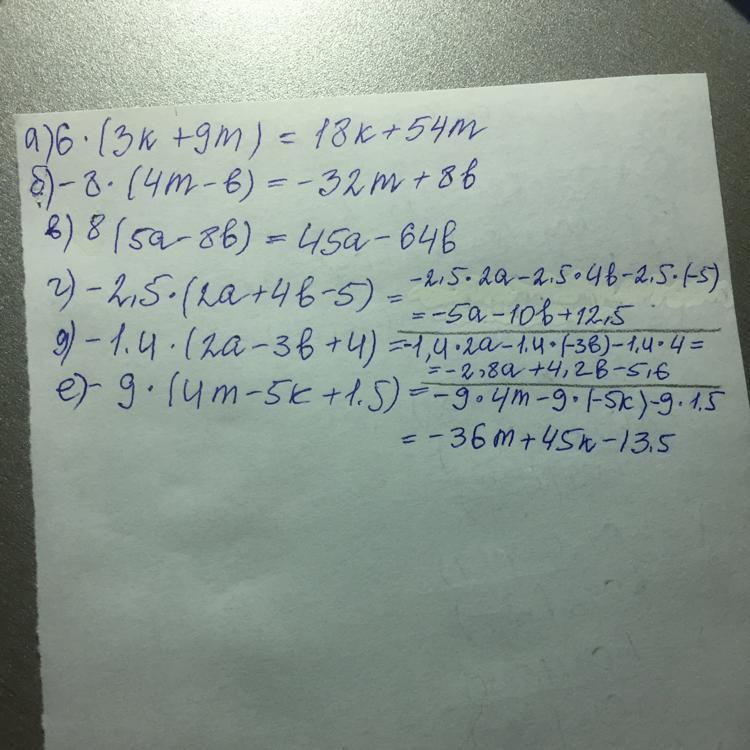 а) 6 · (3к + 9m) = 18к + 54m
б) - 8 · (4m - b) = - 32m + 8b
в) 8 (5a - 8b) = 45a - 64b
г) - 2,5 · (2a + 4b - 5) = -2,5 · 2a - 2,5 · 4b - 2,5 · (-5)
= -5a - 10b + 12,5
д) - 1.4 · (2a - 3b + 4) = -1,4 · 2a - 1.4 · (-3b) - 1,4 · 4 =
= -2,8a + 4,2b - 5,6
е) - 9 · (4m - 5к + 1.5) = -9 · 4m - 9 · (-5к) - 9 · 1.5
= -36m + 45к - 13.5